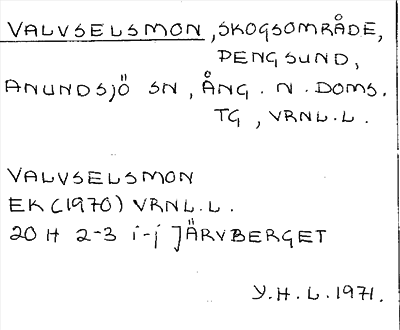 VALVSELSMON, SKOGSOMRÅDE,
PENGSUND,
ANUNDSJÖ SN, ÅNG. N. DOMS.
TG, VRNL.L.
VALVSELSMON
EK (1970) VRNL.L.
20 H 2-3 i-j JÄRVBERGET
Y.H.L. 1971.